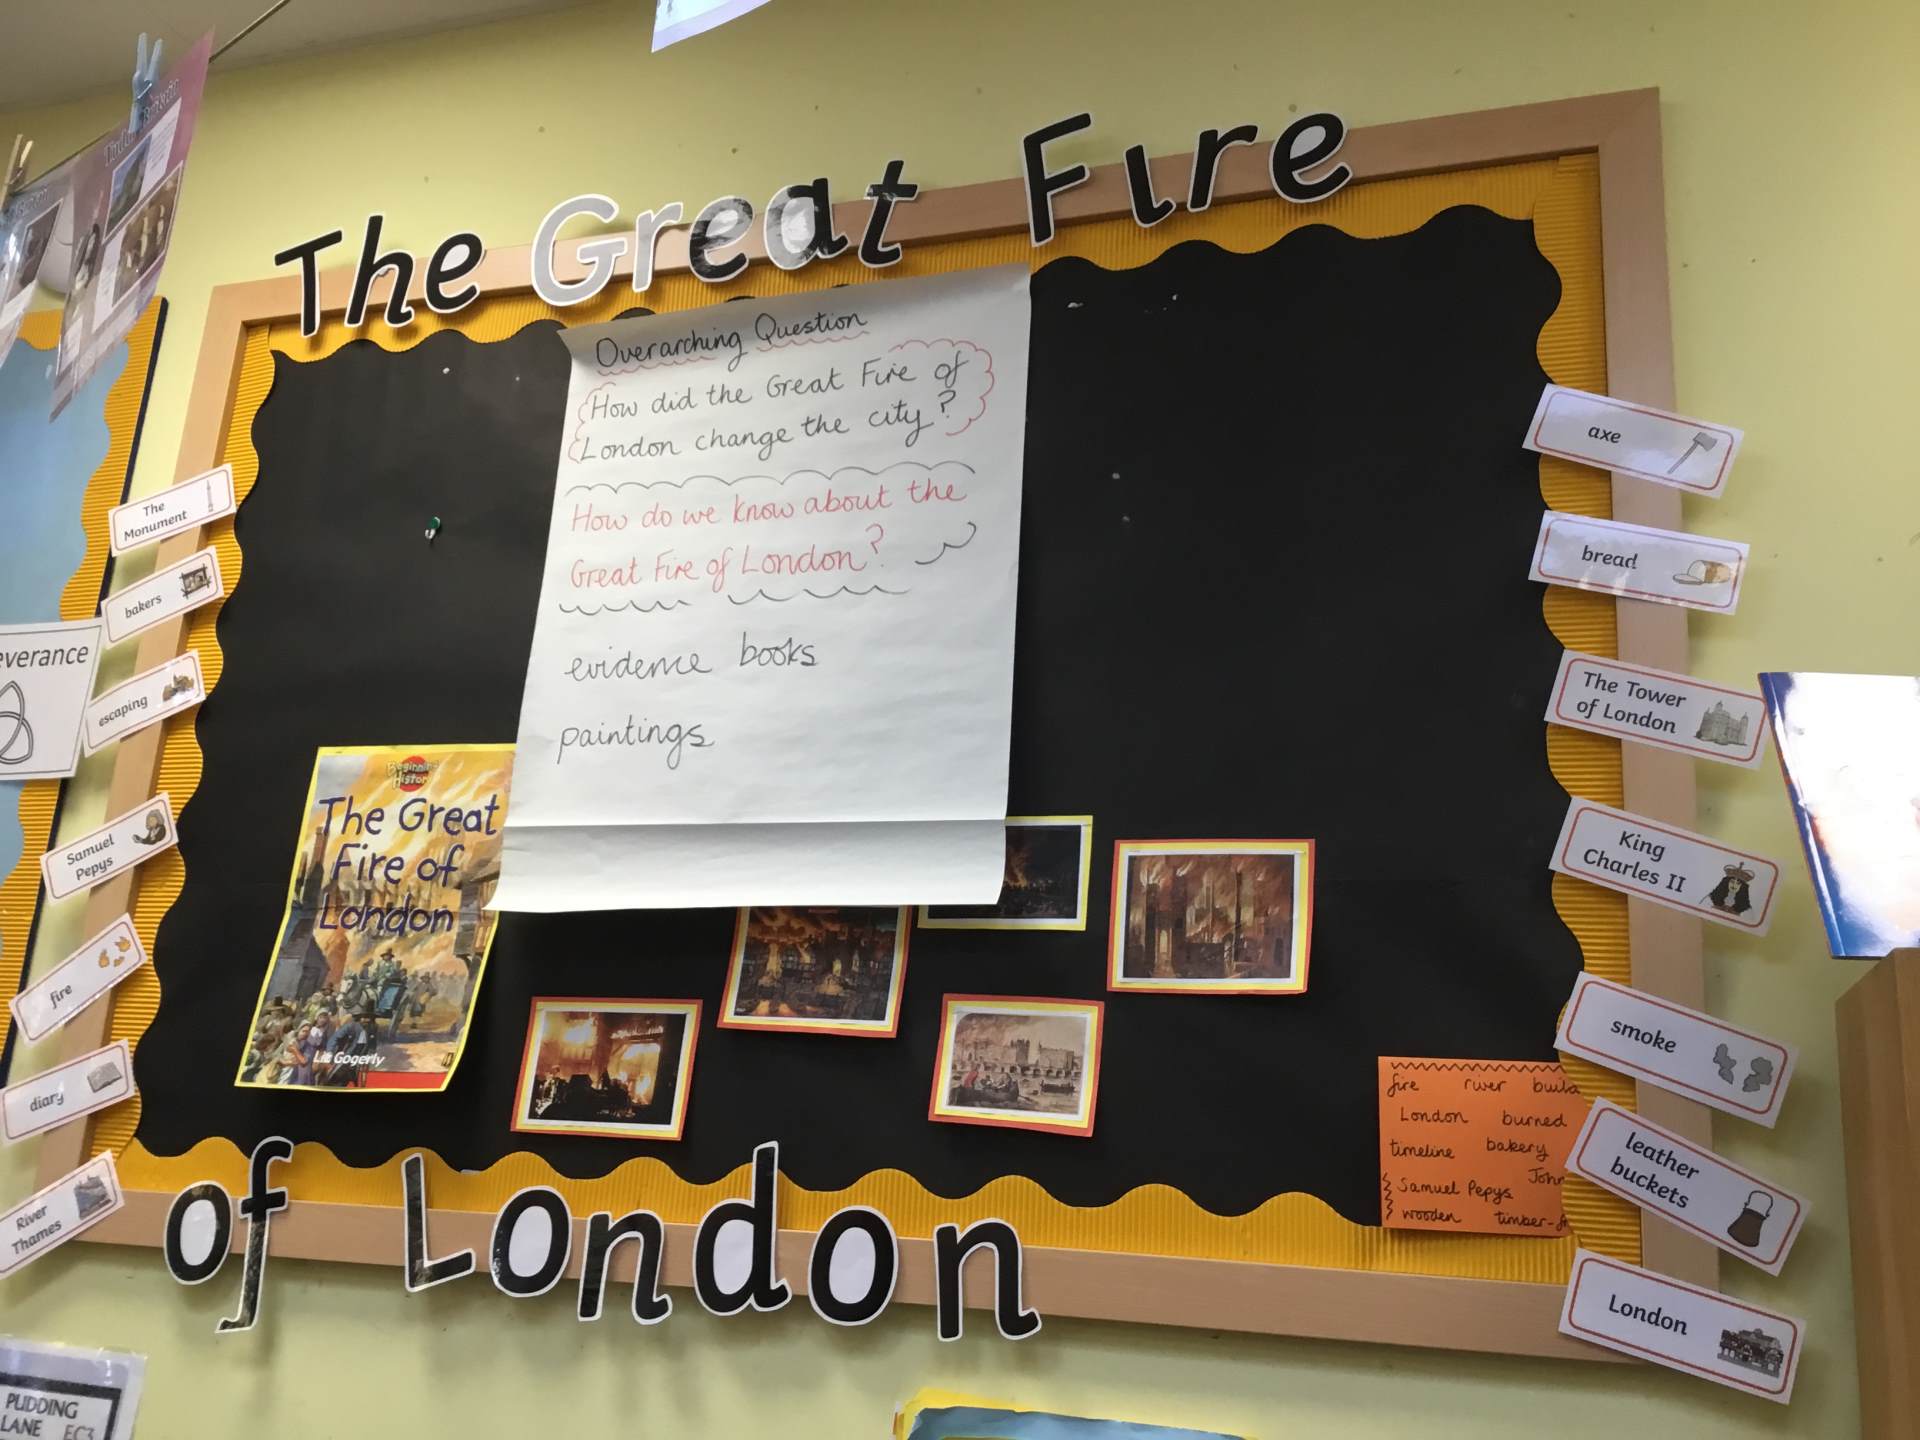 The Great Fire
of London
Overarching Question
How did the Great Fire of
London change the city?
How do we know about the
Great Fire of London?
evidence books
paintings
Beginning
History
The Great
Fire of
London
Liz Gogerly
The
Monument
bakers
escaping
Samuel
Pepys
fire
diary
River
Thames
axe
bread
The Tower
of London
King
Charles II
smoke
leather
buckets
London
fire river build
London burned
timeline bakery
John
Samuel Pepys
wooden timber-f
everance
PUDDING
LANE EC3